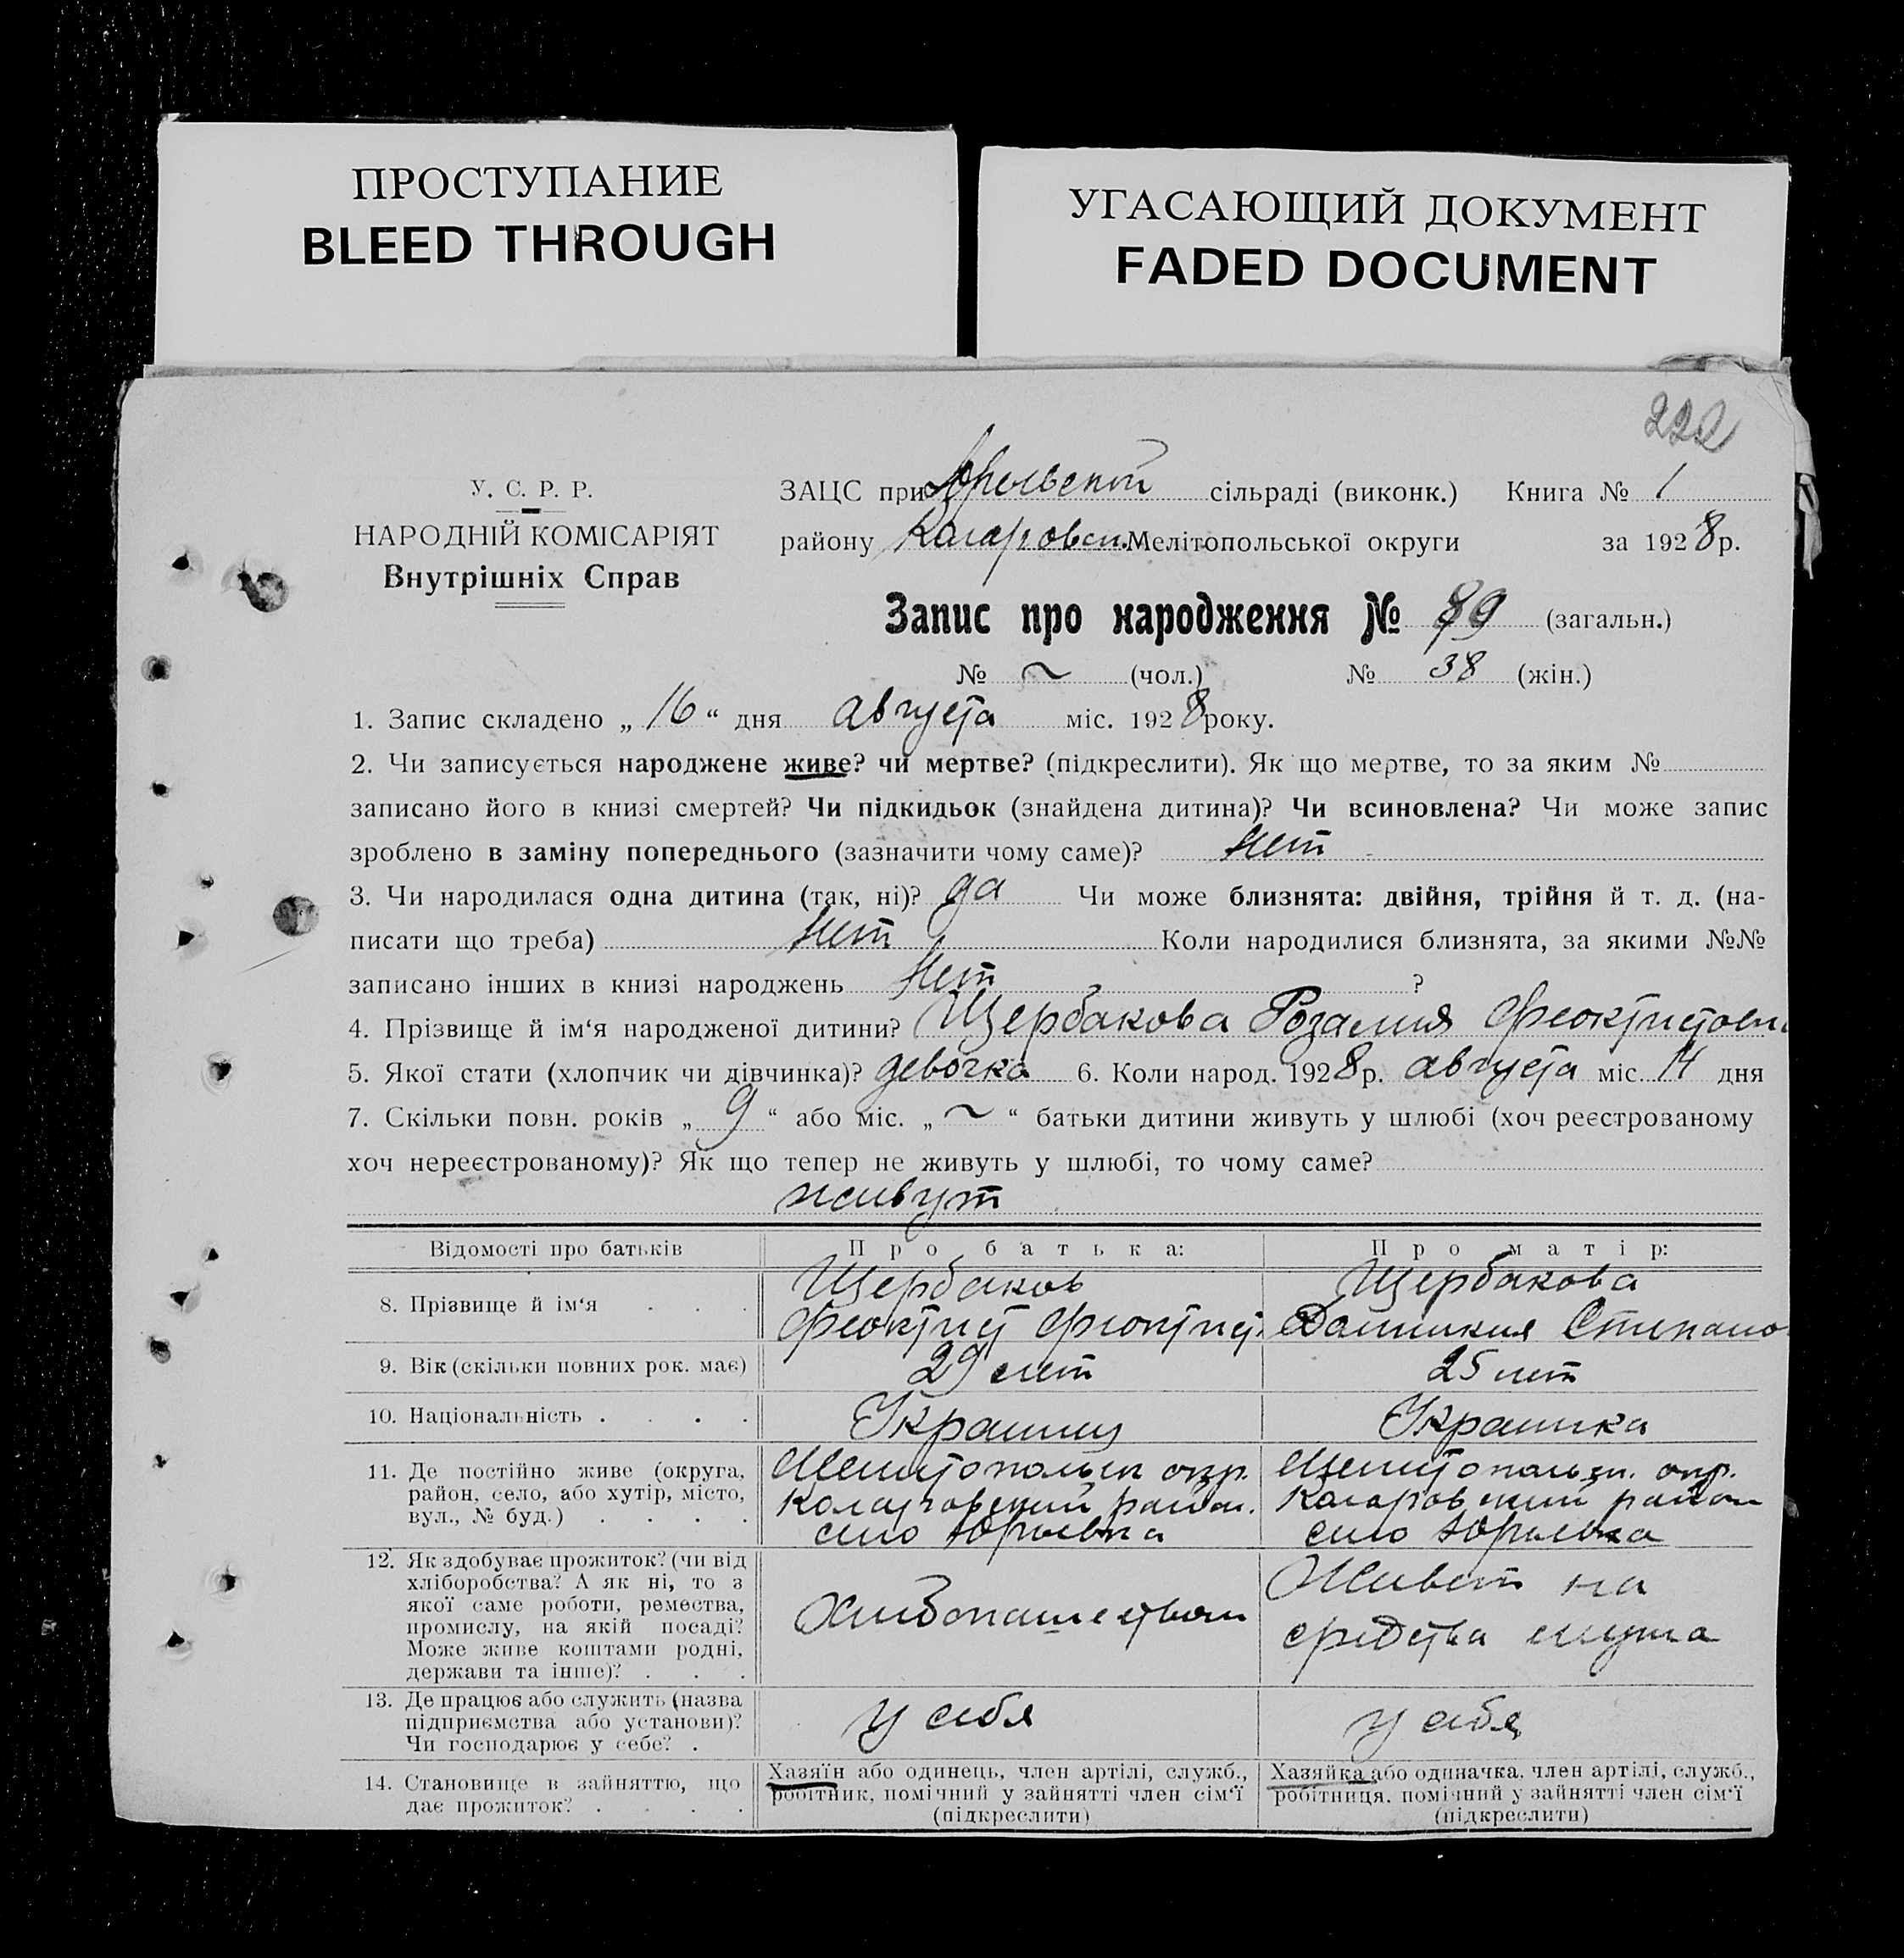 ПРОСТУПАНИЕ
BLEED THROUGH
УГАСАЮЩИЙ ДОКУМЕНТ
FADED DOCUMENT
222
У. С. Р. Р.
НАРОДНІЙ КОМІСАРІЯТ
Внутрішніх Справ
ЗАЦС при Юрьевской сільраді (виконк.) Книга № 1
району Коларовск. Мелітопольської округи за 1928 р.
Запис про народження № 89 (загальн.)
№ ~ (чол.) № 38 (жін.)
1. Запис складено „ 16 “ дня августа міс. 1928 року.
2. Чи записується народжене живе? чи мертве? (підкреслити). Як що мертве, то за яким №
записано його в книзі смертей? Чи підкидьок (знайдена дитина)? Чи всиновлена? Чи може запис
зроблено в заміну попереднього (зазначити чому саме)? нет
3. Чи народилася одна дитина (так, ні)? да Чи може близнята: двійня, трійня й т. д. (на-
писати що треба) нет Коли народилися близнята, за якими №№
записано інших в книзі народжень нет ?
4. Прізвище й ім‘я народженої дитини? Щербакова Розалия Феоктистовн
5. Якої стати (хлопчик чи дівчинка)? девочка 6. Коли народ. 1928 р. августа міс. 14 дня
7. Скільки повн. років „ 9 “ або міс. „ ~ “ батьки дитини живуть у шлюбі (хоч реєстрованому
хоч нереєстрованому)? Як що тепер не живуть у шлюбі, то чому саме?
живут
Відомості про батьків Про батька: Про матір:
8. Прізвище й ім‘я . . .
Щербаков
Феоктист Феоктист.
Щербакова
Домникия Степано
9. Вік (скільки повних рок. має) 29 лет 25 лет
10. Національність . . . . Украинец Украинка
11. Де постійно живе (округа,
район, село, або хутір, місто,
вул., № буд.) . . . .
Мелитопольск окр.
Коларовский район.
село Юрьевка
Мелитопольск. окр.
Коларовский район
село Юрьевка
12. Як здобуває прожиток? (чи від
хліборобства? А як ні, то з
якої саме роботи, ремества,
промислу, на якій посаді?
Може живе коштами родні,
держави та інше)? . . .
Хлебопашеством
Живет на
средства мужа
13. Де працює або служить (назва
підприємства або установи)?
Чи господарює у себе? .
у себя
у себя
14. Становище в зайняттю, що
дає прожиток? . . . .
Хазяїн або одинець, член артілі, служб.,
робітник, помічний у зайнятті член сім‘ї
(підкреслити)
Хазяйка або одиначка, член артілі, служб.,
робітниця, помічний у зайнятті член сім‘ї
(підкреслити)